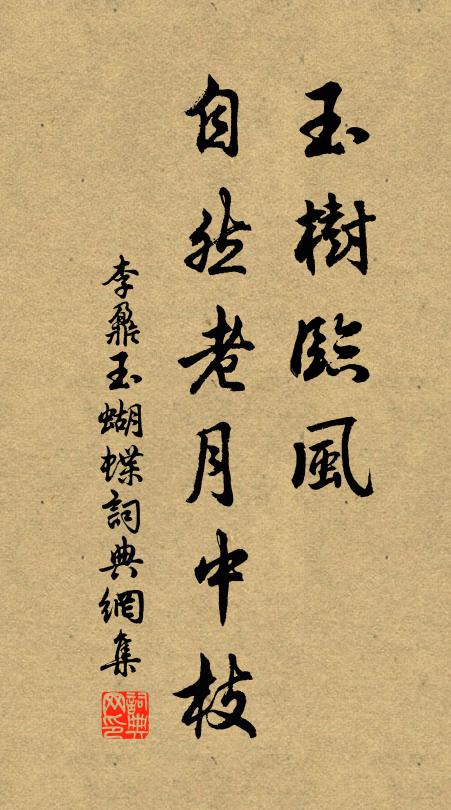 玉樹臨風
自然老月中枝
李鼐玉蝴蝶詞典網集
詞典网印